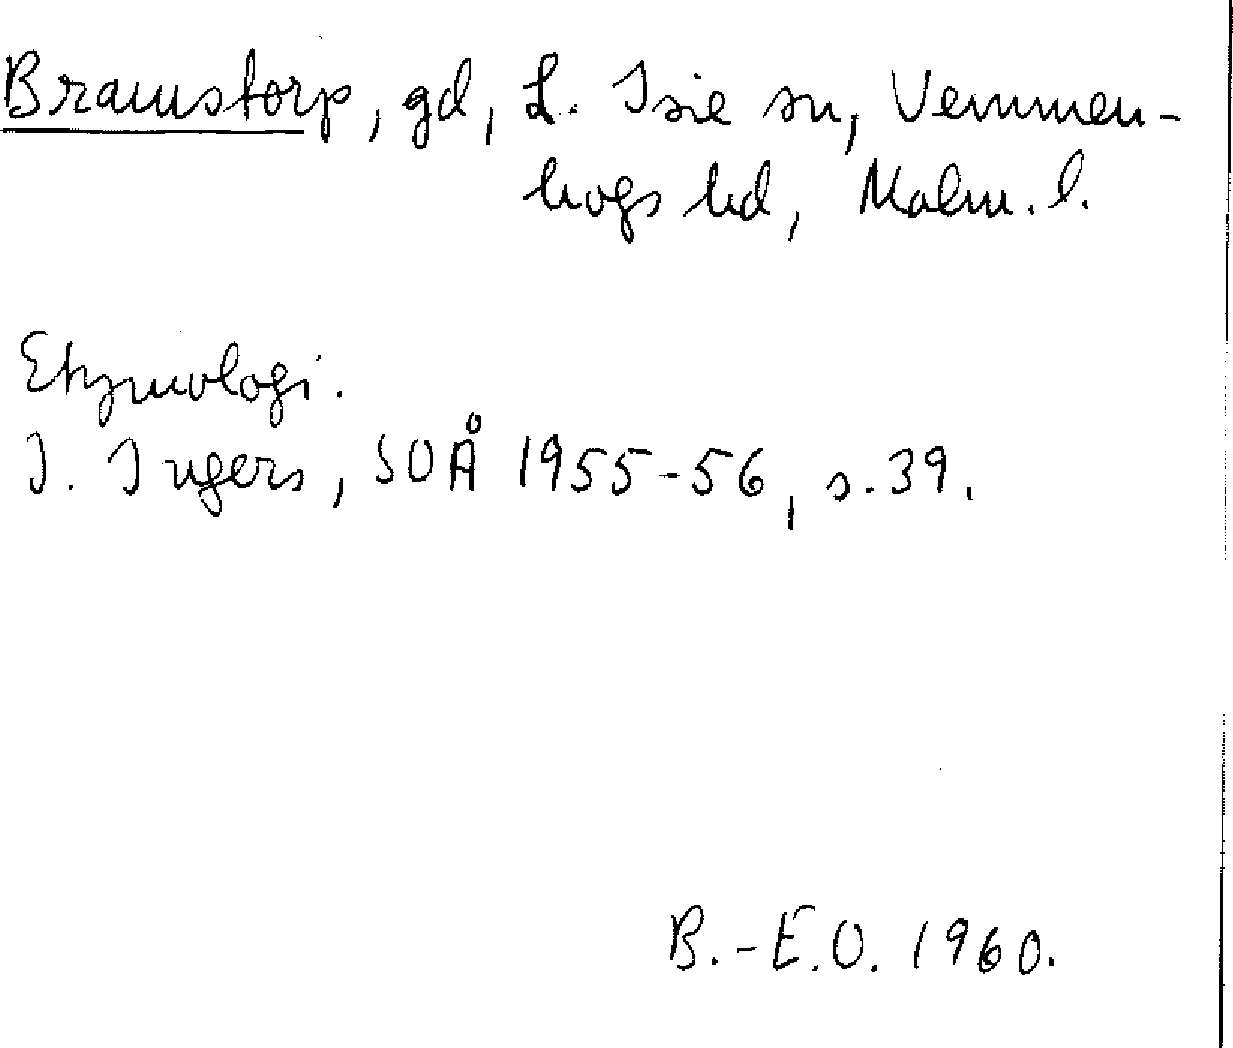 Bramstorp, gd, L. Isie sn, Vemmen-
högs hd, Malm. l.
Etymologi.
I. Ingers, SOÅ 1955-56, s. 39.
B.-E.O. 1960.